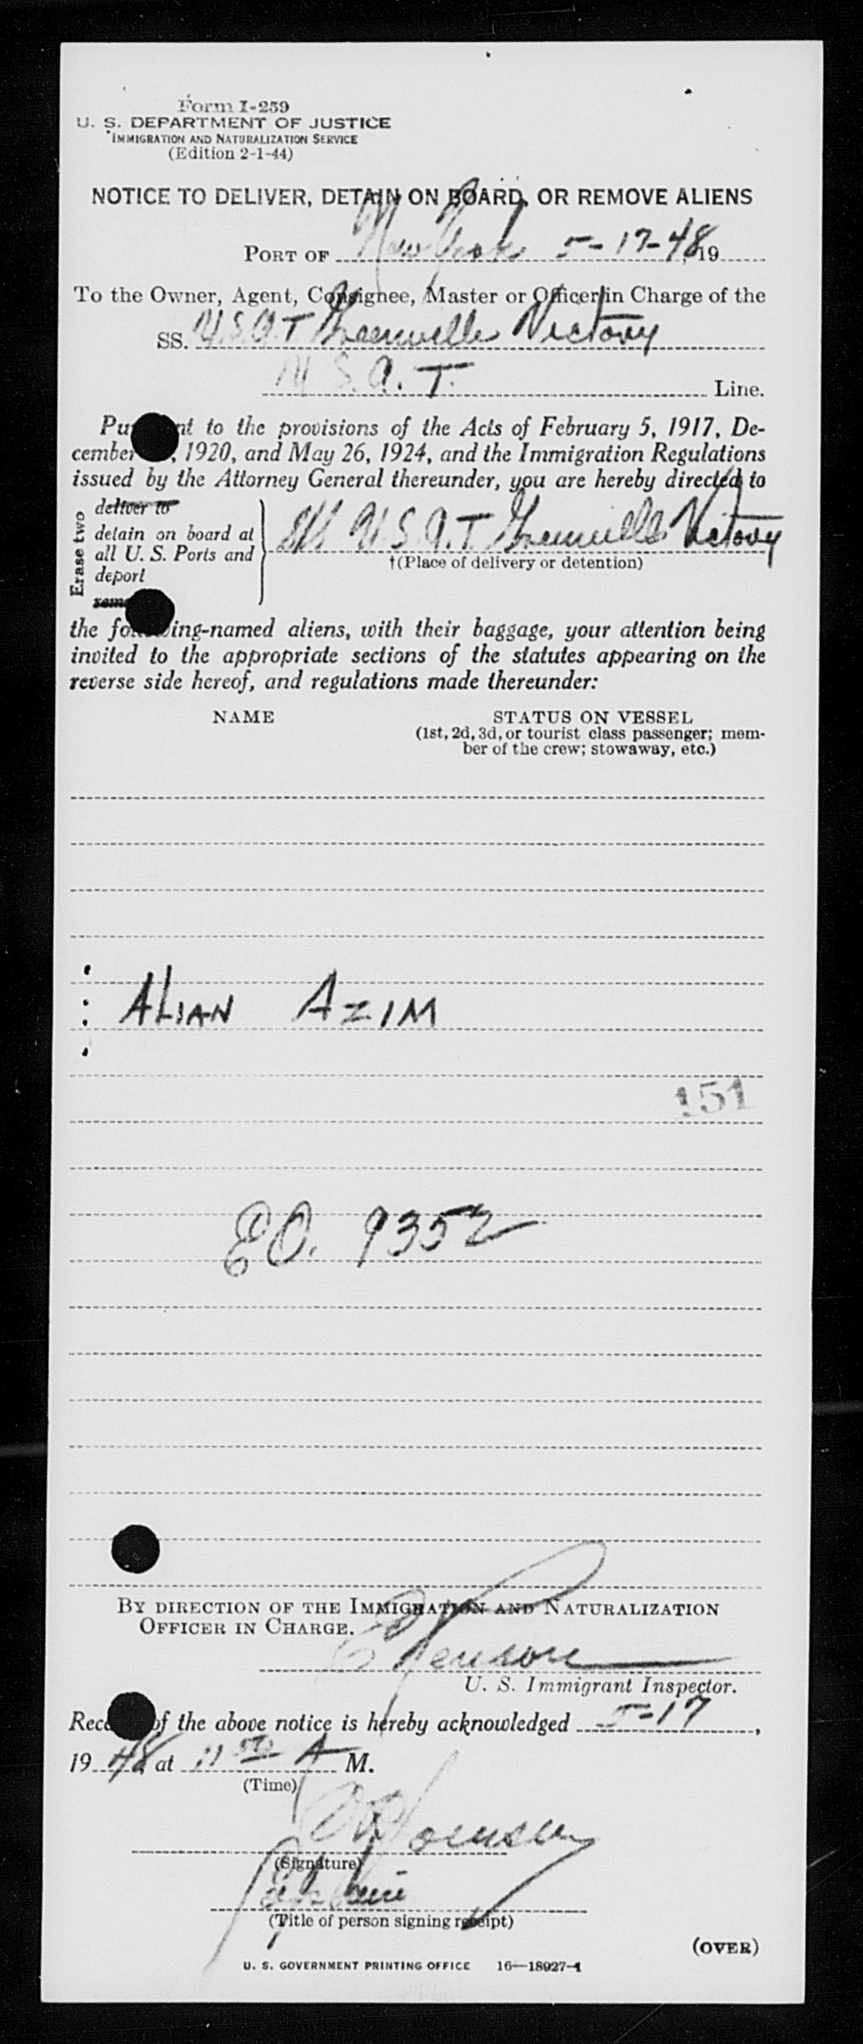 Form I-259
U. S. DEPARTMENT OF JUSTICE
IMMIGRATION AND NATURALIZATION SERVICE
(Edition 2-1-44)
NOTICE TO DELIVER, DETAIN ON BOARD, OR REMOVE ALIENS
PORT OF New York 5-17-48, 19
To the Owner, Agent, Consignee, Master or Officer in Charge of the
SS. U.S.A.T Greenville Victory
U.S.A.T. Line.
Pu nt to the provisions of the Acts of February 5, 1917, De-
cember , 1920, and May 26, 1924, and the Immigration Regulations
issued by the Attorney General thereunder, you are hereby directed to
Erase two
deliver to
detain on board at
all U. S. Ports and
deport
SS U.S.A.T Greenville Victory
†(Place of delivery or detention)
the fo ing-named aliens, with their baggage, your attention being
invited to the appropriate sections of the statutes appearing on the
reverse side hereof, and regulations made thereunder:
NAME STATUS ON VESSEL
(1st, 2d, 3d, or tourist class passenger; mem-
ber of the crew; stowaway, etc.)
ALIAN AZIM
151
EO. 9352
BY DIRECTION OF THE IMMIGRATION AND NATURALIZATION
OFFICER IN CHARGE.
U. S. Immigrant Inspector.
Rec of the above notice is hereby acknowledged 5-17,
19 48, at 11 50 A M.
(Time)
(Signature)
(Title of person signing receipt)
(OVER)
U. S. GOVERNMENT PRINTING OFFICE 16—18927-1